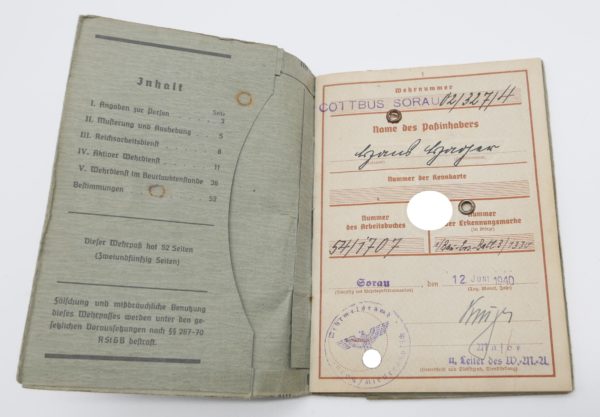 Inhalt
Seite
I. Angaben zur Person 3
II. Musterung und Aushebung 5
III. Reichsarbeitsdienst 8
IV. Aktiver Wehrdienst 11
V. Wehrdienst im Beurlaubtenstande 36
Bestimmungen 53
Dieser Wehrpaß hat 52 Seiten
(Zweiundfünfzig Seiten)
Fälschung und mißbräuchliche Benutzung
dieses Wehrpasses werden unter den ge-
setzlichen Voraussetzungen nach §§ 267-70
RStGB bestraft.
1
Wehrnummer
COTTBUS SORAU 02/327/4
Name des Paßinhabers
Hans
Nummer der Kennkarte
Nummer
des Arbeitsbuches
Nummer
der Erkennungsmarke
54/1707
Sorau, den 12 Juni 1940
(Tag, Monat, Jahr)
Major
u. Leiter des W.M.A.